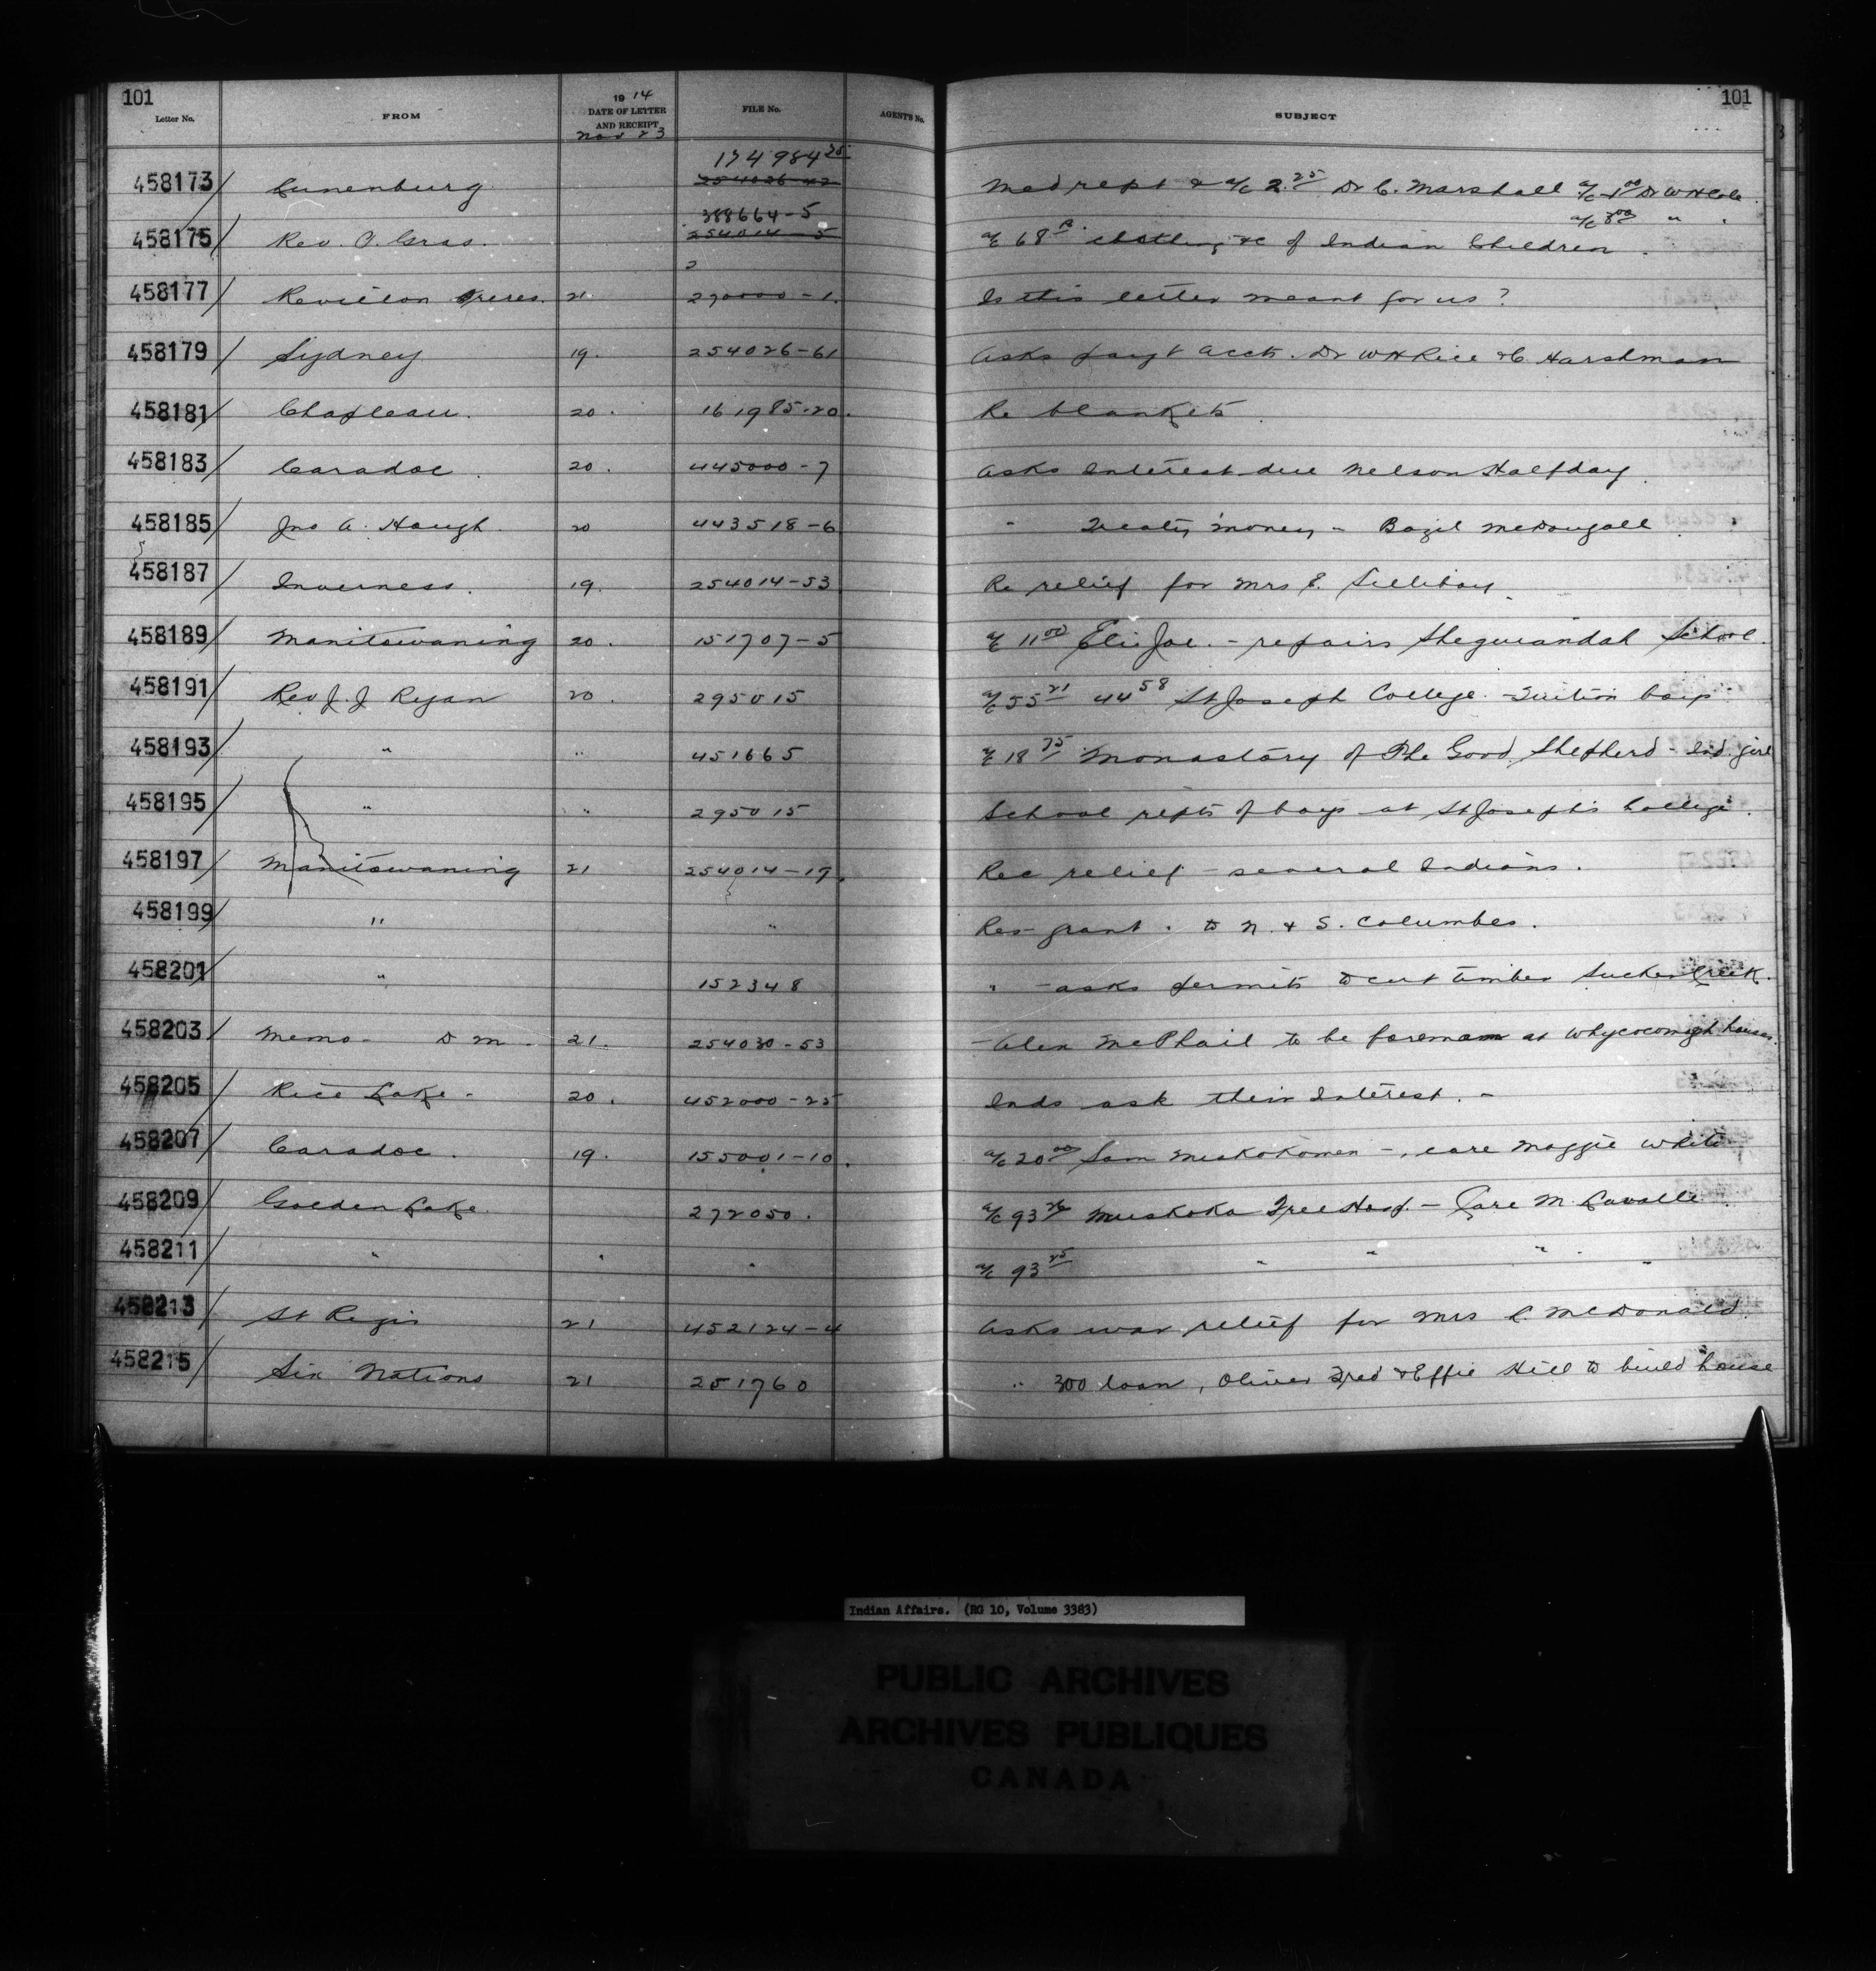 101 101
Letter No. FROM 1914 DATE OF LETTER AND RECEIPT FILE No. AGENTS No. SUBJECT
Nov 23
174984 25
458173/ Lunenburg 254026-42 Med rept & a/c 2.25 Dr C. Marshall a/c 1 00 Dr W H Cole
388664-5 a/c 3 00 " "
458175/ Rev. P. Gras. 254014-5 a/c 68 clothing &c of Indian Children
2
458177/ Revillon Freres. 21 270000-1. Is this letter meant for us?
458179/ Sydney 19. 254026-61 Asks payt accts. Dr W H Rice & C. Harshman
458181/ Chapleau. 20. 161985-20. Re blankets
458183/ Caradoc. 20. 445000-7 Asks Interest due Nelson Halfday
458185/ Jno A. Hough. 20 443518-6 " Treaty money - Bazil McDougall
458187 Inverness. 19. 254014-53 Re relief for Mrs E. Silliboy
458189/ Manitowaning 20. 151707-5 a/c 11 00 Eli Joe. - repairs Sheguiandah School.
458191/ Rev J. J Ryan 20. 295015 a/c 55 21 44 58 St Joseph College - Tuition boys
458193/ " " 451665 a/c 18 75 Monastary of The Good Shepherd - Ind. girl
458195/ " " 295015 School repts of boys at St Joseph's College.
458197/ Manitowaning 21 254014-19. Rec relief - several Indians.
458199/ " " Res grant. to N. & S. Columbes.
458201/ " 152348 " - asks permits to cut timber Sucker Creek.
458203/ Memo - D M - 21. 254030-53 - Alex McPhail to be foreman at Whycocomagh houses.
458205/ Rice Lake - 20. 452000-25 Inds ask their Interest. -
458207/ Caradoc. 19. 155001-10. a/c 20 00 Sam Muskokomon -, care Maggie White
458209/ Golden Lake. 272050. a/c 93 Muskoka Free Hosp. - Care M. Lavalle
458211/ " " " a/c 93 25 " " " "
458213/ St Regis 21 452124-4 Asks war relief for Mrs L. McDonald.
458215/ Six Nations 21 251760 " 300 loan, Oliver Fred & Effie Hill to build house
Indian Affairs. (RG 10, Volume 3383)
PUBLIC ARCHIVES
ARCHIVES PUBLIQUES
CANADA